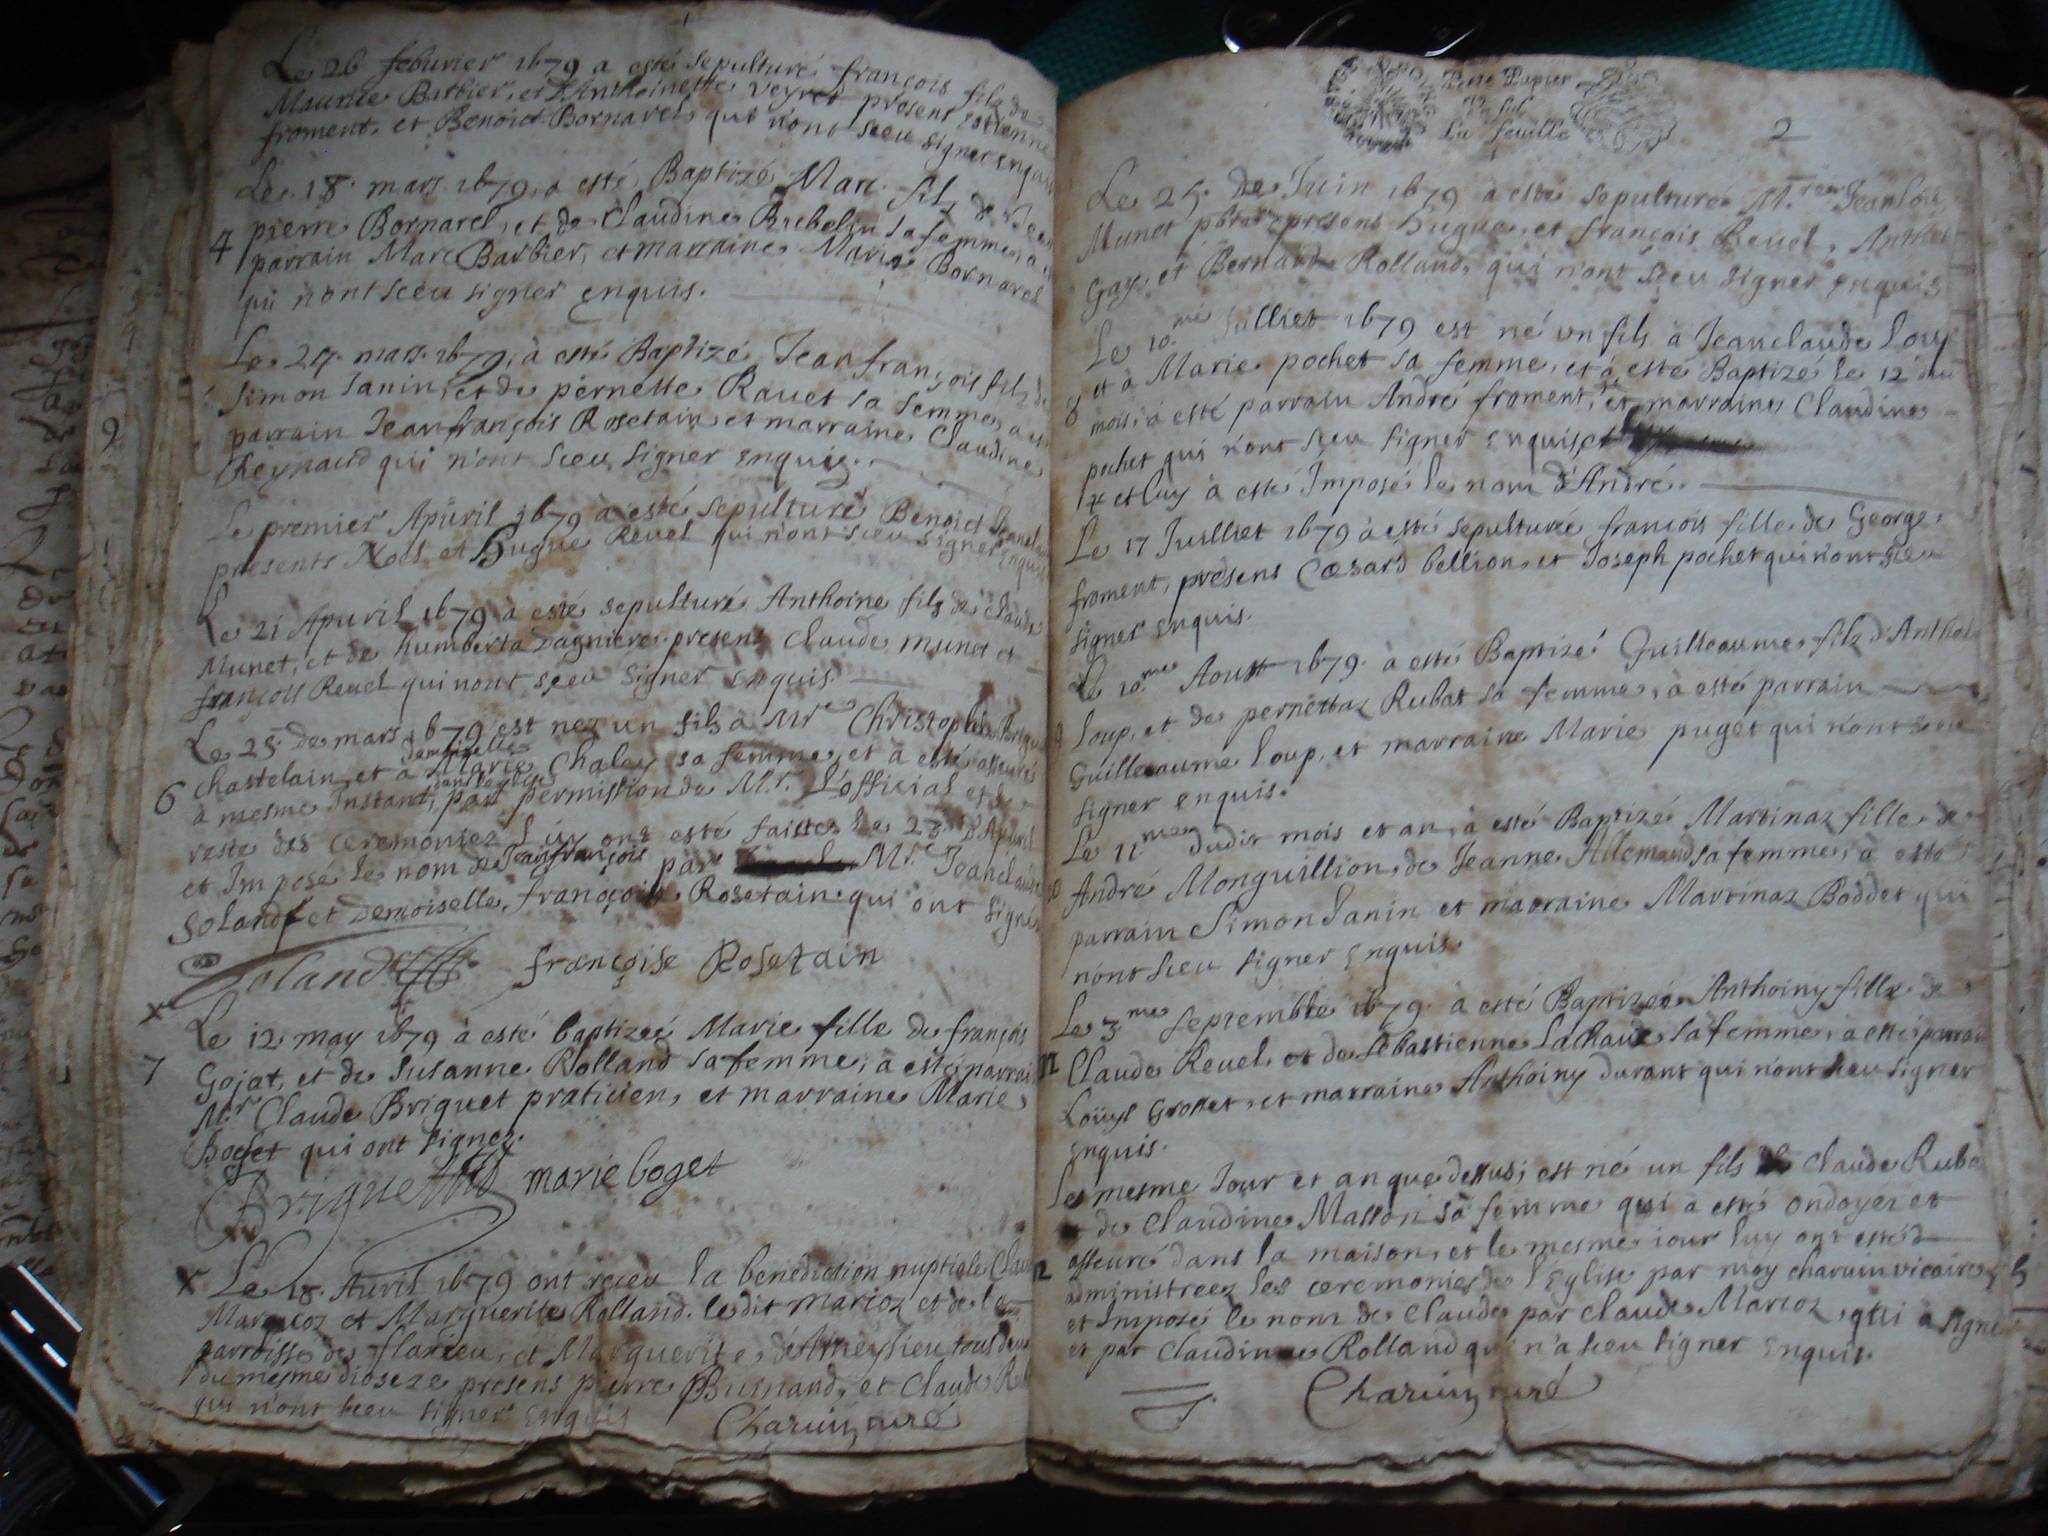 Le 26 feburier 1679 a esté sepulturé françois filz de
Maurice Barbier, et d'Anthoinette Veyret presens Estienne
froment, et Benoict Bornarel, qui n'ont sceu signer enquis
Le 18. mars 1679, à esté Baptizé Marc filz de
4
pierre Bornarel, et de Claudine Brebelin sa femme, a
parrain Marc Barbier, et marraine Marie Bornarel
qui n'ont sceu signer enquis.
Le 24. mars 1679, à esté Baptizé Jean françois filz de
Simon Janin, et de pernette Ravet sa femme, a
parrain Jean françois Rosetain, et marraine Claudine
Cheynaud qui n'ont sceu signer enquis.
Le premier Apuril 1679 à esté sepulturé Benoict
presents Noel et Hugue Revel qui n'ont sceu signer enquis
Le 21 Apuril 1679 à esté sepulturé Anthoine filz de claude
Munet, et de humberta Dagniere presens Claude munet et
françois Revel qui n'ont sceu signer enquis.
Le 25. de mars 1679 est nez un fils à Mre Christophle
chastelain, et à demoiselle Marie Chaley sa femme, et à esté asseuré
6
à mesme Instant, dans leglise par permission de Mr. L'official et le
reste des ceremonies Luy ont esté faittes le 28. d'Apuril
et Imposé le nom de Jean françois par Mre Jeanclaude
Soland et Demoiselle françoise Rosetain qui ont signé
Soland françoise Rosetain
x
Le 12 may 1679 à esté baptizeé Marie fille de françois
7
Gojat, et de Susanne Rolland sa femme, à esté parrain
Mr. Claude Briguet praticien, et marraine Marie
Boget qui ont signez.
Briguet marie boget
x Le 18. Avril 1679 ont receu la benediction nuptiale
Marcoz et Marguerite Rolland. le dit marcoz et de la
parroisse de flaxieu, et Marguerite d'Ameysieu tous deux
du mesme dioseze presens pierre Burnand, et Claude
qui n'ont sceu signer enquis
Charvin, curé
Petit Papier
la feuille
2
Le 25. de Juin 1679 à esté sepulturé Mre Jean Lois
Munet presens Hugue, et françois Revel, Anthel
Gay, et Bernard Rolland, qui n'ont sceu signer enquis
Le 10.me Juilliet 1679 est né un fils à Jeanclaude Loup
et à Marie pochet sa femme, et à esté Baptizé le 12 du
8
mois, à esté parrain André froment, et marraine Claudine
pochet qui n'ont sceu signer enquis, et
et luy à esté Imposé le nom d'André.
Le 17 Juilliet 1679 à esté sepulturée françois fille de George
froment, presens Cæsard bellion, et Joseph pochet qui n'ont sceu
signer enquis.
Le 10.me Aoust 1679. à esté Baptizé Guilleaume filz d'Anthel
9
Loup, et de pernettaz Rubat sa femme, à esté parrain
Guilleaume Loup, et marraine Marie puget qui n'ont sceu
signer enquis.
Le 11.me dudit mois et an, à esté Baptizé Martinaz fille de
10
André Monguillion, de Jeanne Allemand sa femme, à esté
parrain Simon Janin et marraine Martinaz Boddet qui
n'ont sceu signer enquis.
Le 3me Septembre 1679. à esté Baptizée Anthoiny fille de
11
Claude Revel, et de Sebastienne Lachaux sa femme, à esté parrain
Loüys Grosset, et marraine Anthoiny durant qui n'ont sceu signer
enquis.
Le mesme Jour et an que dessus, est né un fils de Claude Rubat
et de Claudine Masson sa femme qui à esté ondoyer et
asseuré dans la maison, et le mesme iour luy ont esté
12
administreez les ceremonies de l'Eglise par moy charvin vicaire
et Imposé le nom de Claude par Claude Marcoz, qui à signé
et par Claudine Rolland qui n'a sceu signer enquis.
Charvin, curé